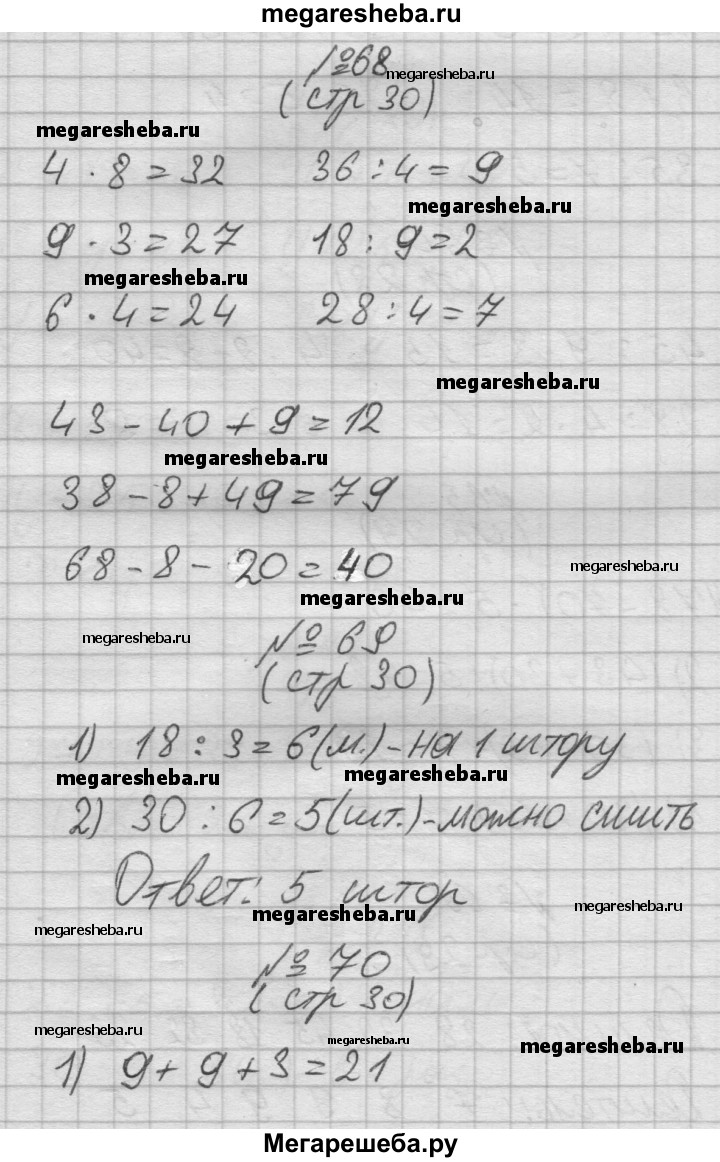 megaresheba.ru
№68 megaresheba.ru
(стр 30)
megaresheba.ru
4 · 8 = 32 36 : 4 = 9
megaresheba.ru
9 · 3 = 27 18 : 9 = 2
megaresheba.ru
6 · 4 = 24 28 : 4 = 7
megaresheba.ru
43 - 40 + 9 = 12
megaresheba.ru
38 - 8 + 49 = 79
68 - 8 - 20 = 40 megaresheba.ru
megaresheba.ru
megaresheba.ru № 69
(стр 30)
1) 18 : 3 = 6(м.) - на 1 штору
megaresheba.ru megaresheba.ru
2) 30 : 6 = 5(шт.) - можно сшить
Ответ: 5 штор
megaresheba.ru megaresheba.ru megaresheba.ru
№ 70
(стр 30)
megaresheba.ru megaresheba.ru megaresheba.ru
1) 9 + 9 + 3 = 21
Мегарешеба.ру